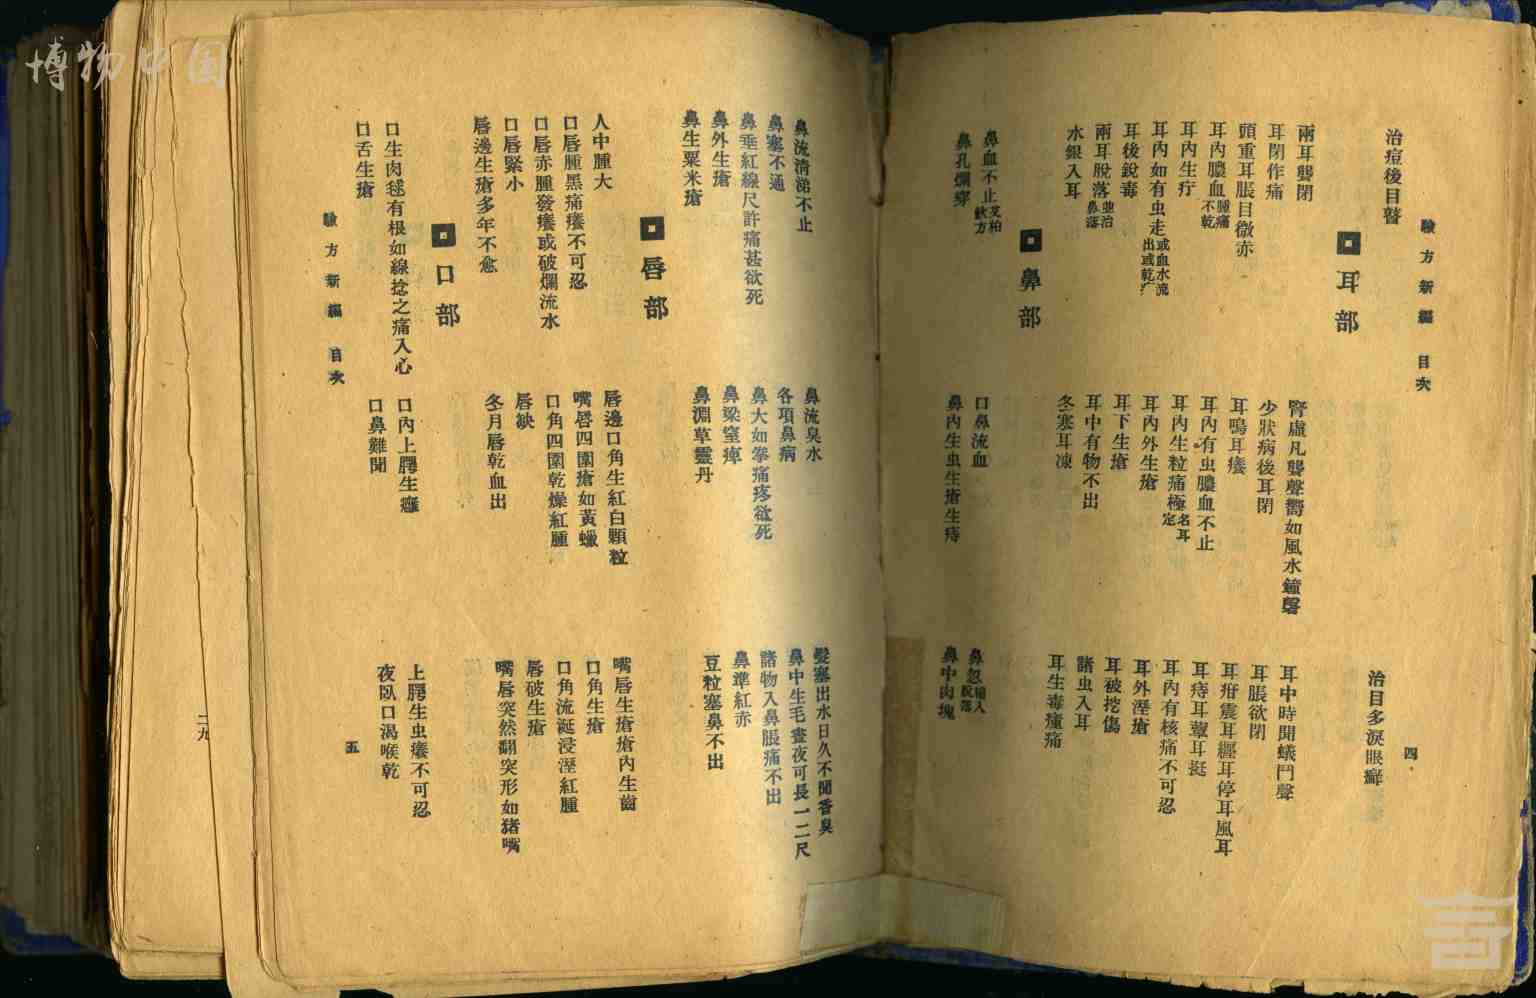 博物中国
驗方新編 目次
四
治痘後目瞽
治目多淚眼癬
耳部
兩耳聾閉
腎虛凡聾聲嚮如風水鐘磬
耳中時聞蟻鬥聲
耳閉作痛
少狀病後耳閉
耳脹欲閉
頭重耳脹目微赤
耳鳴耳癢
耳疳震耳纏耳停耳風耳
耳內膿血腫痛不乾
耳內有虫膿血不止
耳痔耳蕈耳挺
耳內生疔
耳內生粒痛極名耳定
耳內有核痛不可忍
耳內如有虫走或血水流出或乾痒
耳內外生瘡
耳外溼瘡
耳後銳毒
耳下生瘡
耳被挖傷
兩耳脫落並治鼻落
耳中有物不出
諸虫入耳
水銀入耳
冬寒耳凍
耳生毒瘇痛
鼻部
鼻血不止又柏軟方
口鼻流血
鼻忽縮入脫落
鼻孔爛穿
鼻內生虫生瘡生痔
鼻中肉塊
鼻流清涕不止
鼻流臭水
髮塞出水日久不聞香臭
鼻塞不通
各項鼻病
鼻中生毛晝夜可長一二尺
鼻垂紅線尺許痛甚欲死
鼻大如拳痛疼欲死
諸物入鼻脹痛不出
鼻外生瘡
鼻梁窒痺
鼻準紅赤
鼻生粟米瘡
鼻淵草靈丹
豆粒塞鼻不出
唇部
人中腫大
唇邊口角生紅白顆粒
嘴唇生瘡瘡內生齒
口唇腫黑痛癢不可忍
嘴唇四圍瘡如黃蠟
口角生瘡
口唇赤腫發癢或破爛流水
口角四圍乾燥紅腫
口角流涎浸溼紅腫
口唇緊小
唇缺
唇破生瘡
唇邊生瘡多年不愈
冬月唇乾血出
嘴唇突然翻突形如豬嘴
口部
口生肉毬有根如線捻之痛入心
口內上腭生癰
上腭生虫癢不可忍
口舌生瘡
口鼻難聞
夜臥口渴喉乾
驗方新編 目次
五
二九